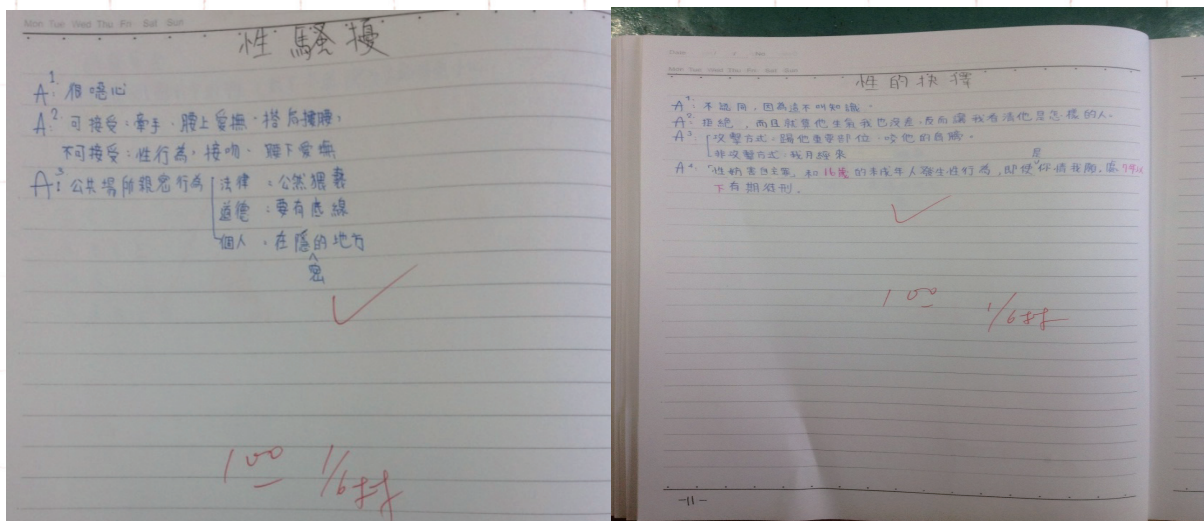 Mon Tue Wed Thu Fri Sat Sun
性騷擾
A1: 很噁心
A2: 可接受:牽手、腰上愛撫、搭肩摟腰;
不可接受:性行為、接吻、腰下愛撫
A3: 公共場所親密行為 法律:公然猥褻
道德:要有底線
個人:在隱的地方
密
100 1/6
Mon Tue Wed Thu Fri Sat Sun
性的抉擇
A1: 不認同,因為這不叫知識。
A2: 拒絕,而且就算他生氣我也沒差,反而讓我看清他是怎樣的人。
A3: 攻擊方式:踢他重要部位、咬他的
非攻擊方式:我月經來
是
A4: 性妨害自主罪,和16歲的未成年人發生性行為,即使你情我願,處
下有期徒刑。
100 1/6
-11-